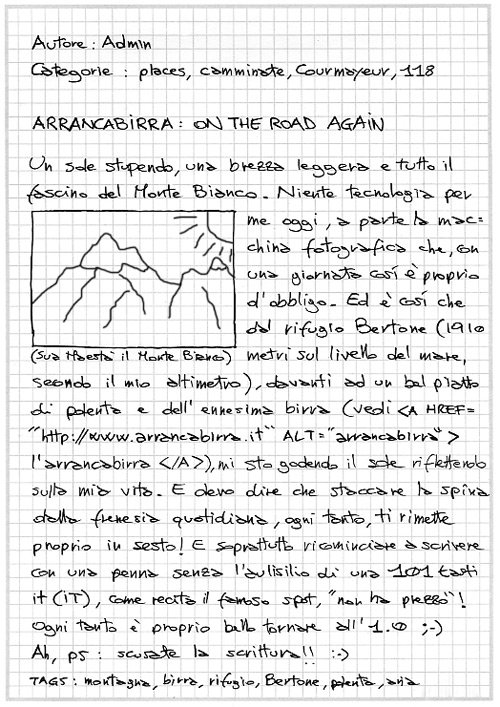 Autore : Admin
Categorie : places, camminate, Courmayeur, 118
ARRANCABIRRA : ON THE ROAD AGAIN
Un sole stupendo, una brezza leggera e tutto il
fascino del Monte Bianco. Niente tecnologia per
me oggi, a parte la mac=
china fotografica che, con
una giornata così è proprio
d'obbligo. Ed è così che
dal rifugio Bertone (1910
(Sua Maestà il Monte Bianco) metri sul livello del mare,
secondo il mio altimetro), davanti ad un bel piatto
di polenta e dell'ennesima birra (vedi <A HREF=
"http://www.arrancabirra.it" ALT="arrancabirra">
l'arrancabirra </A>), mi sto godendo il sole riflettendo
sulla mia vita. E devo dire che staccare la spina
dalla frenesia quotidiana, ogni tanto, ti rimette
proprio in sesto! E soprattutto ricominciare a scrivere
con una penna senza l'aulisilio di una 101 tasti
it (IT), come recita il famoso spot, "non ha prezzo"!
Ogni tanto è proprio bello tornare all'1.0 ;-)
Ah, ps : scusate la scrittura!! :-)
TAGS : montagna, birra, rifugio, Bertone, polenta, aria